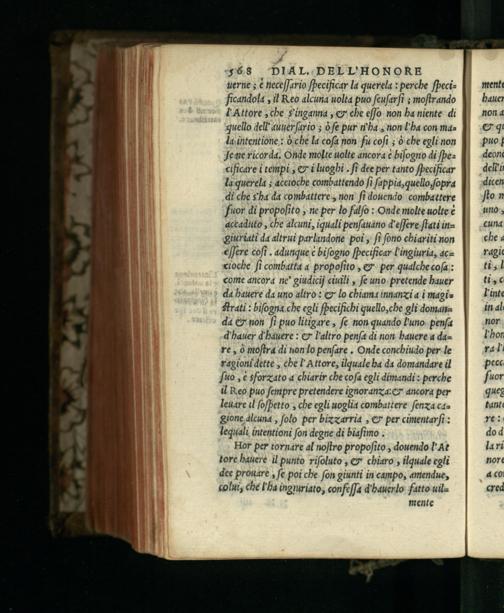 568 DIAL. DELL'HONORE
uerne; è necessario specificar la querela: perche speci-
ficandola, il Reo alcuna uolta puo scusarsi; mostrando
l'Attore, che s'inganna, & che esso non ha niente di
quello dell'auuersario; ò se pur n'ha, non l'ha con ma-
la intentione: ò che la cosa non fu cosi; ò che egli non
se ne ricorda. Onde molte uolte ancora è bisogno di spe-
cificare i tempi, & i luoghi. si dee per tanto specificar
la querela; accioche combattendo si sappia, quello, sopra
di che s'ha da combattere, non si douendo combattere
fuor di proposito, ne per lo falso: Onde molte uolte è
accaduto, che alcuni, iquali pensauano d'essere stati in-
giuriati da altrui parlandone poi, si sono chiariti non
essere cosi. adunque è bisogno specificar l'ingiuria, ac-
cioche si combatta a proposito, & per qualche cosa:
come ancora ne' giudicij ciuili, se uno pretende hauer
da hauere da uno altro: & lo chiama innanzi a i magi-
strati: bisogna che egli specifichi quello, che gli doman-
da & non si puo litigare, se non quando l'uno pensa
d'hauer d'hauere: & l'altro pensa di non hauere a da-
re, ò mostra di non lo pensare. Onde conchiudo per le
ragioni dette, che l'Attore, ilquale ha da domandare il
suo, è sforzato a chiarir che cosa egli dimandi: perche
il Reo puo sempre pretendere ignoranza: & ancora per
leuare il sospetto, che egli uoglia combattere senza ca-
gione alcuna, solo per bizzarria, & per cimentarsi:
lequali intentioni son degne di biasimo.
Hor per tornare al nostro proposito, douendo l'At
tore hauere il punto risoluto, & chiaro, ilquale egli
dee prouare, se poi che son giunti in campo, amendue,
colui, che l'ha ingiuriato, confessa d'hauerlo fatto uil-
mente